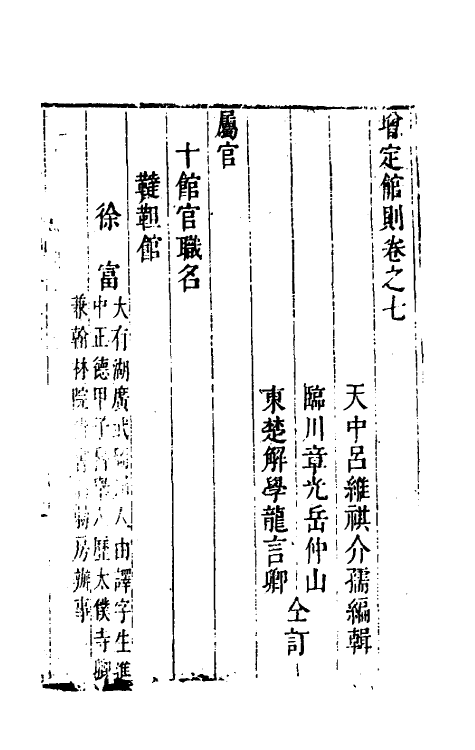 增定館則卷之七
天中呂維祺介孺編輯
臨川章光岳仲山
東楚解學龍言卿
仝訂
屬官
十館官職名
韃靼館
徐富
大有湖廣武人由譯字生進
中正德甲子舉人歷太僕寺卿
兼翰林院房辦事